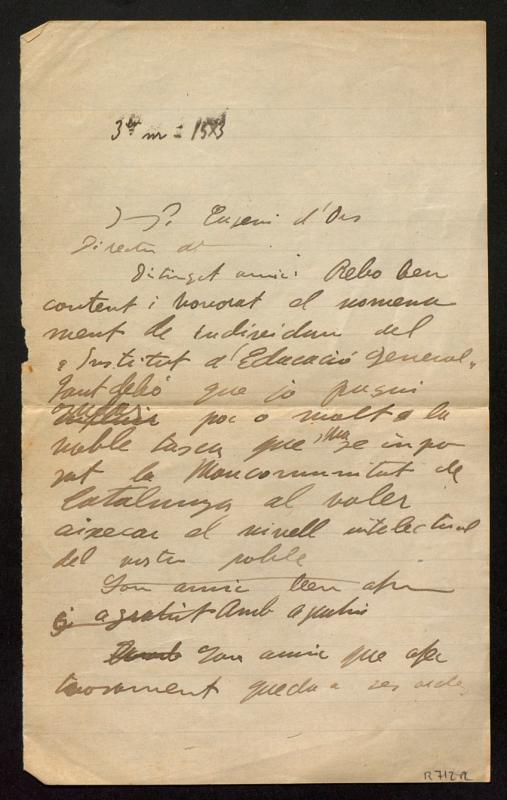 Eugeni d'Ors
Director d
Distingit amic: Rebo ben
content i honorat el nomena
ment de individuu del
"Institut d'Educació general"
que jo pugui
poc o molt a la
noble tasca que s'ha impo
sat la Mancomunitat de
Catalunya al voler
aixecar el nivell intelectual
del nostre poble
Son amic ben afm
agrahit Amb
Son amic que afec
tuosament queda a ses ordes
R 712 R